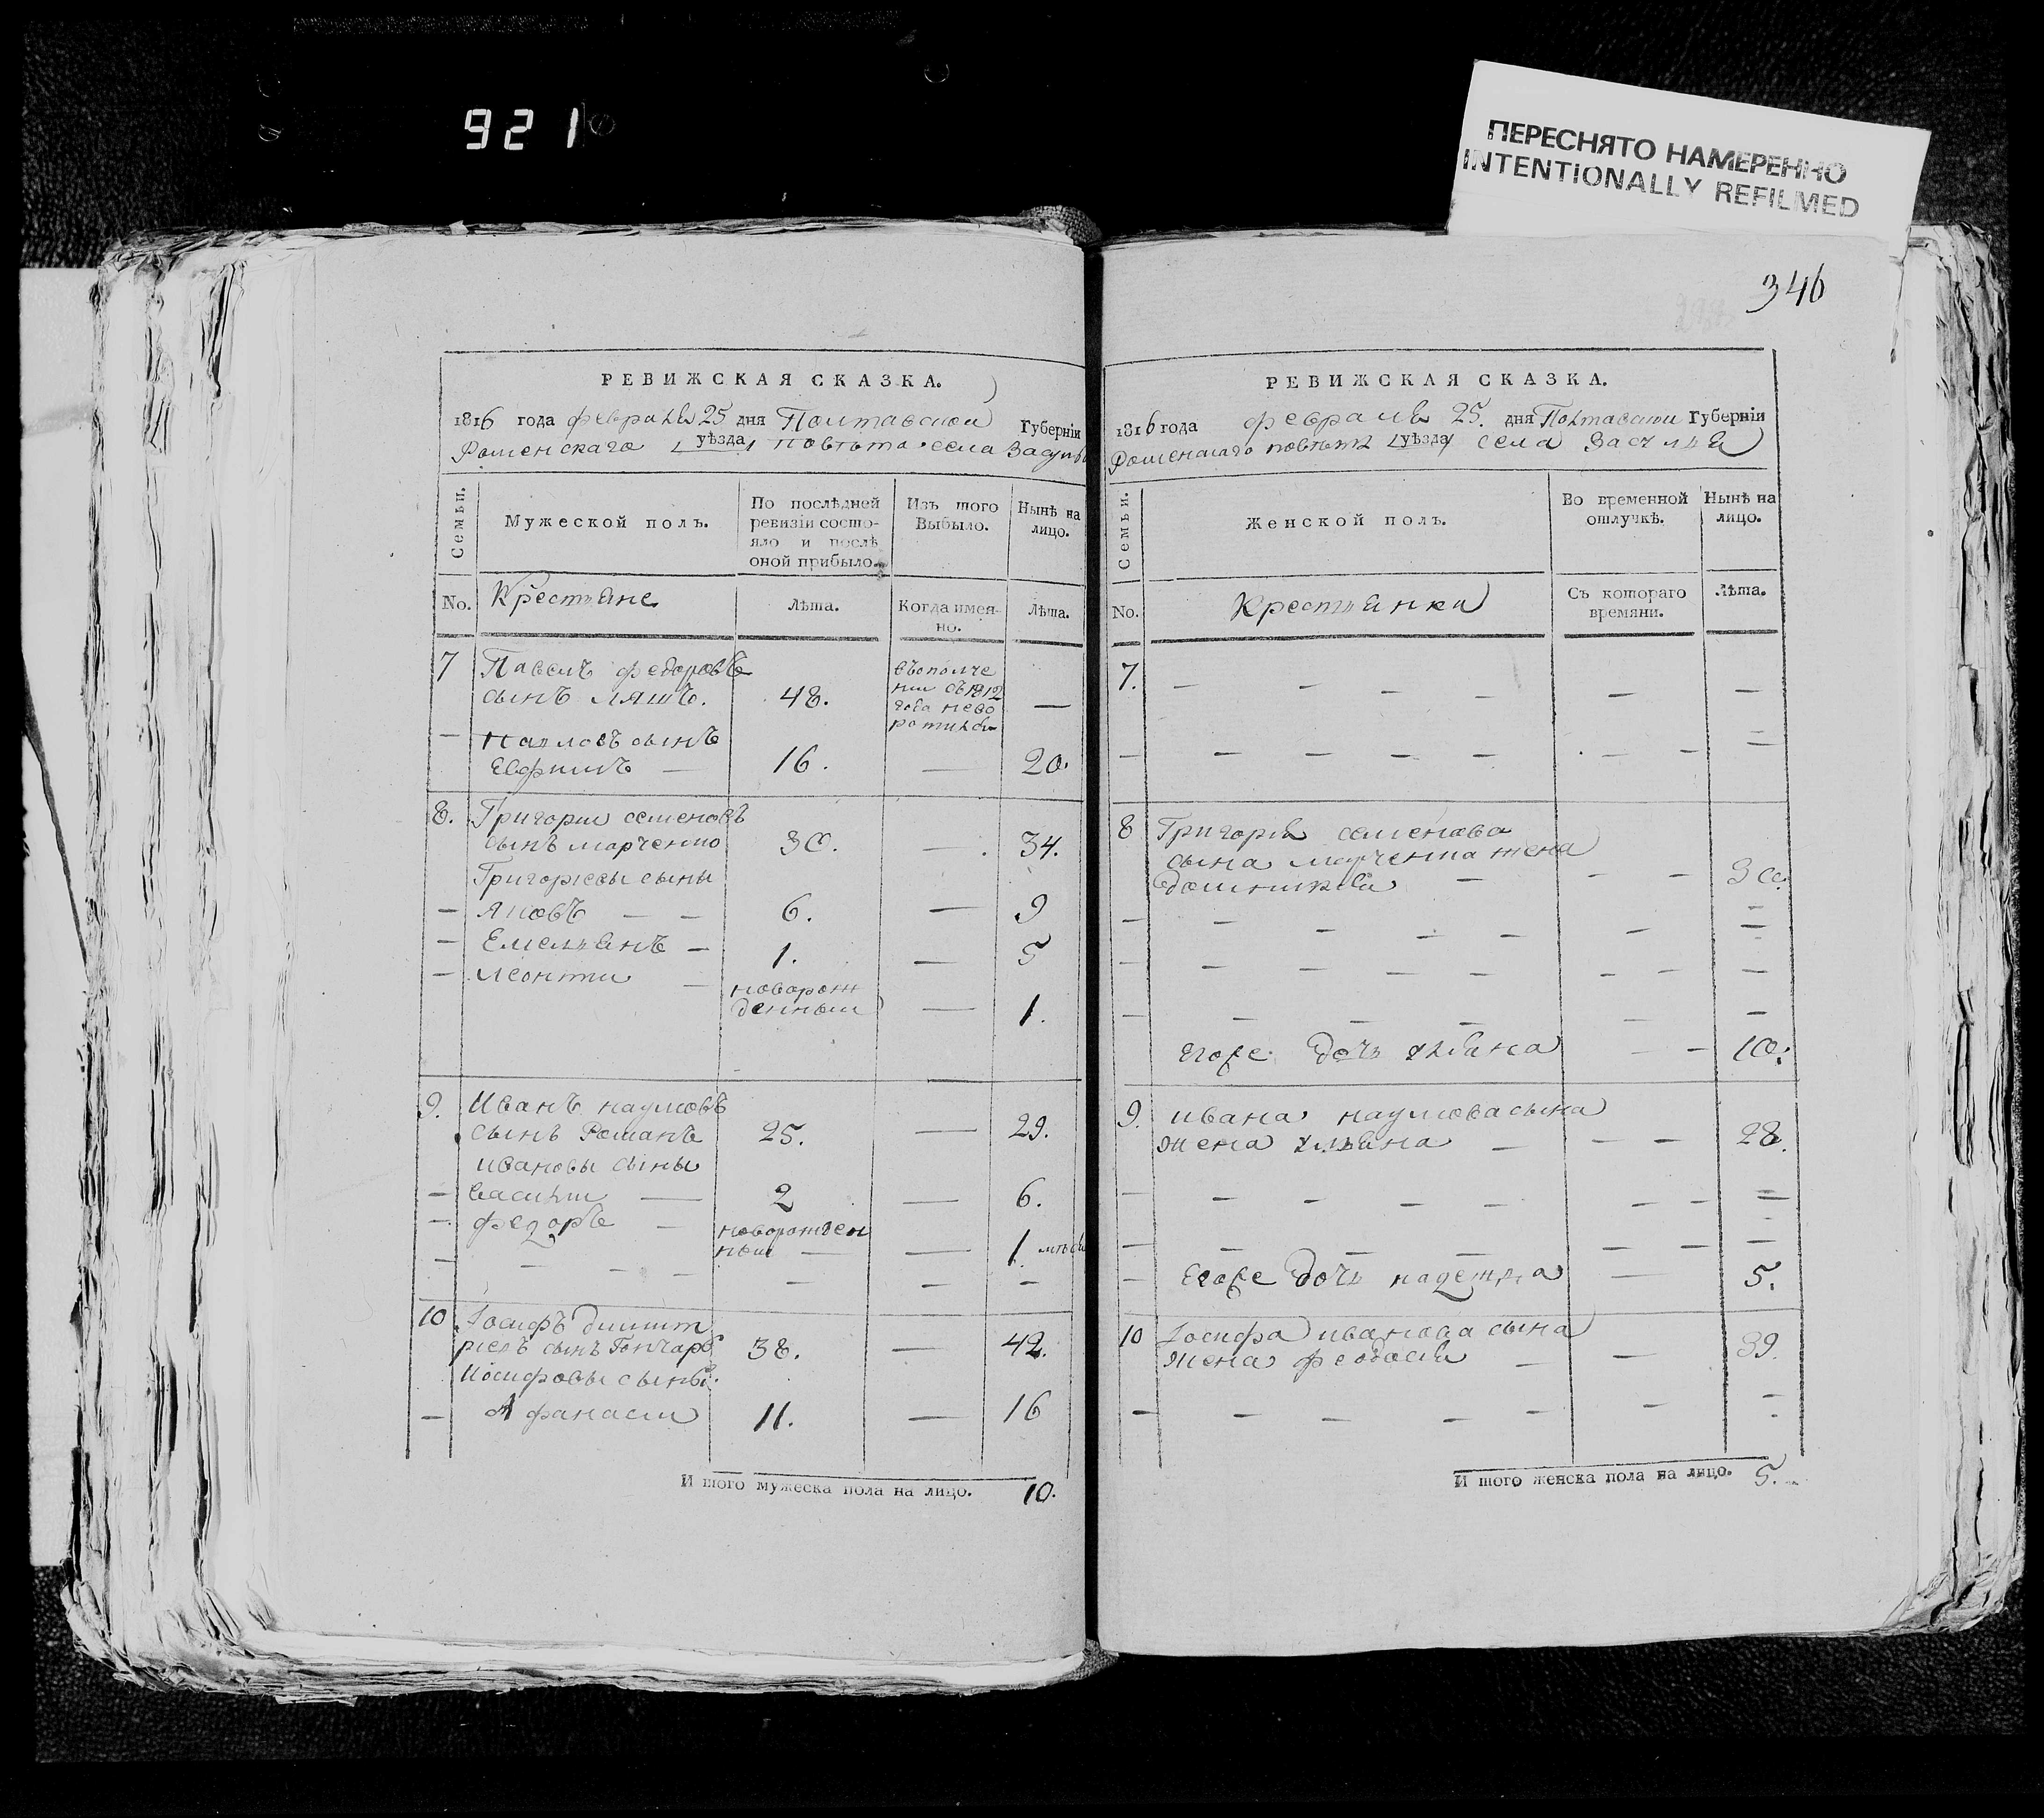 921
ПЕРЕСНЯТО НАМЕРЕННО
INTENTIONALLY REFILMED
346
РЕВИЖСКАЯ СКАЗКА.
1816 года февраля 25 дня Полтавской Губерніи
Роменскаго уѣзда повѣта села Засулья
Семьи.
Мужеской полъ.
По послѣдней
ревизіи состо-
яло и послѣ
оной прибыло.
Изъ того
Выбыло.
Нынѣ на
лицо.
No.
Крестьяне
Лѣта.
Когда имян-
но.
Лѣта.
7 Павелъ федоровъ
сынъ ляшъ. 48. —
въополче
нии съ1812
года нево
ротился
— Павловъ сынъ
Евфимъ — 16. — 20.
8. Григории семеновъ
сынъ марченко 30. — 34.
Григориевы сыны
— Яковъ — — 6. — 9
— Емельянъ — 1. — 5
— леонтии — новорож
денныи — 1.
9. Иванъ наумовъ
сынъ Романъ 25. — 29.
ивановы сыны
— василии — 2 — 6.
— федоръ — новорожден
ныи — — 1
— — — — — — —
10 Іосифъ димит
риевъ сынъ Гончаръ 38. — 42.
Иосифовы сыны.
— Афанасии 11. — 16
И того мужеска пола на лицо. 10.
РЕВИЖСКАЯ СКАЗКА.
1816 года февраля 25. дня Полтавской Губерніи
Роменскаго повѣта уѣзда села Засулья
Семьи.
Женской полъ.
Во временной
отлучкѣ.
Нынѣ на
лицо.
No.
Крестьянки
Съ котораго
времяни.
Лѣта.
7. — — — — — —
— — — — — — — —
8 Григория семенова
сына марченка жена
домникия — — — 30.
— — — — — — —
— — — — — — — —
— — — — — —
Егоже дочь ульяна — — 10.
9. ивана наумова сына
жена ульяна — — — 28.
— — — — — — — —
— — — — — — —
— Егоже дочь надежда — 5.
10 Іосифа иванова сына
жена феодосия — — 39.
— — — — — — —
И того женска пола на лицо. 5.